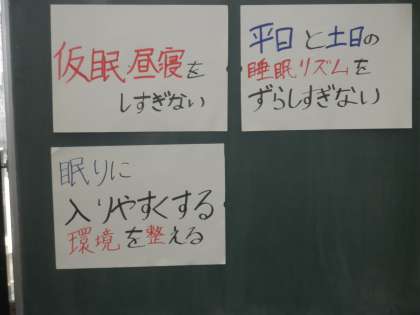 仮眠・昼寝を
しすぎない
平日と土日の
睡眠リズムを
ずらしすぎない
眠りに
入りやすくする
環境を整える